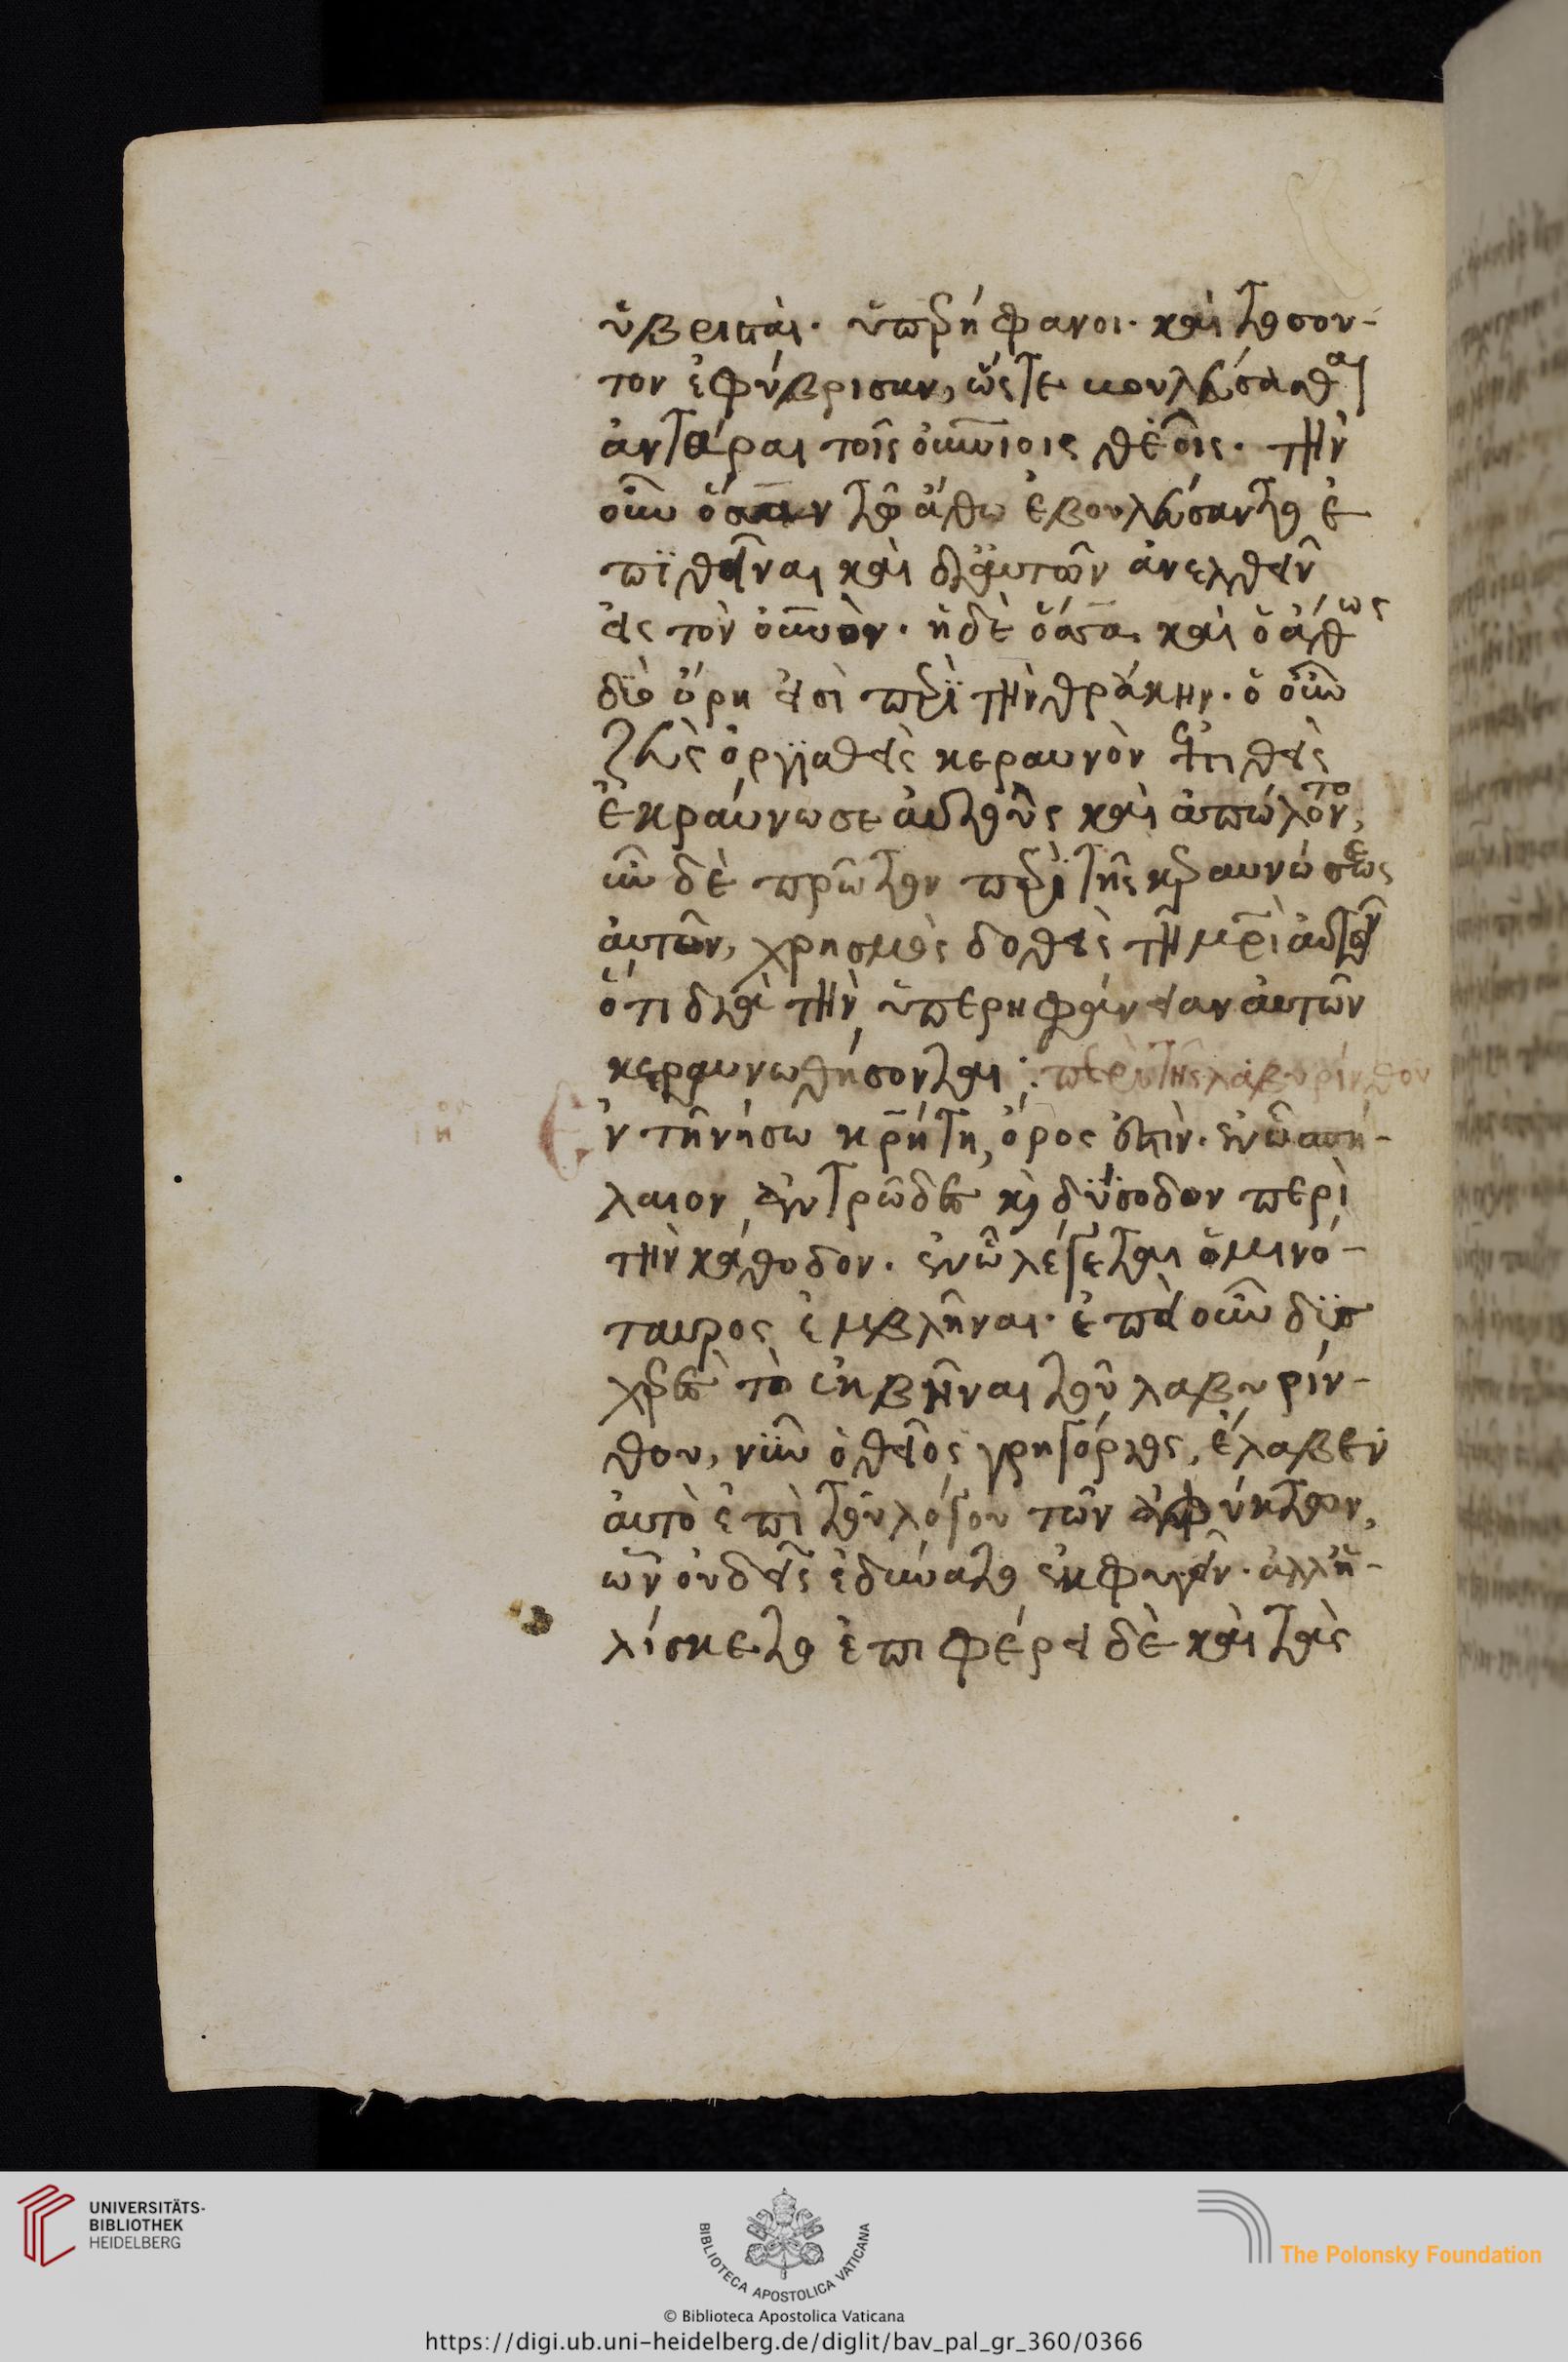 ὑβρισταὶ. ὑπερήφανοι. καὶ τοσον-
τον ἐφύβρισαν, ὥστε βουλεύσασθαι
ἀντᾶραι τοῖς οὐνίοις θεοῖς. τὴν
οὖν ὄσσαν τῶ ἄθω ἐβουλεύσαντο ἐ
πιθεῖναι καὶ δι' αὐτῶν ἀνελθεῖν
εἰς τὸν οὐνὸν. ἡ δὲ ὄσσα καὶ ὁ ἄθως
δύο ὄρη εἰσὶ περὶ τὴν θράκην. ὁ οὖν
ζεὺς ὀργισθεὶς κεραυνὸν ἐπιθεὶς
ἐκεραύνωσε αὐτοὺς καὶ ἀπώλοντο,
ἦν δὲ πρῶτον περὶ τῆς κεραυνώσεως
αὐτῶν, χρησμὸς δοθεὶς τῆ μρὶ αὐτῶν
ὅτι διὰ τὴν ὑπερηφάνειαν αὐτῶν
κεραυνωθήσονται: περὶ τῆς λαβυρίνθου
Ἐν τῆ νήσω κρήτη, ὄρος ἐστὶν. ἐν ὧ σπή-
λαιον ἀντρῶδες κὶ δύσοδον περὶ
τὴν κάθοδον. ἐν ὧ λέγεται ὁ μινό-
ταυρος ἐμβλῆναι. ἐπεὶ οὖν δυσ
χερὲς τὸ ἐκβῆναι τοῦ λαβυρίν-
θου, νῦν ὁ θεῖος γρηγόριος, ἔλαβεν
αὐτὸ ἐπὶ τοῦ λόγου τῶν ἀφύκτων,
ὧν οὐδεὶς ἐδύνατο ἐκφυγεῖν. ἀλλ' ἡ-
λίσκετο ἐπιφέρει δὲ καὶ τὰς
UNIVERSITÄTS-
BIBLIOTHEK
HEIDELBERG
BIBLIOTECA APOSTOLICA VATICANA
The Polonsky Foundation
© Biblioteca Apostolica Vaticana
https://digi.ub.uni-heidelberg.de/diglit/bav_pal_gr_360/0366